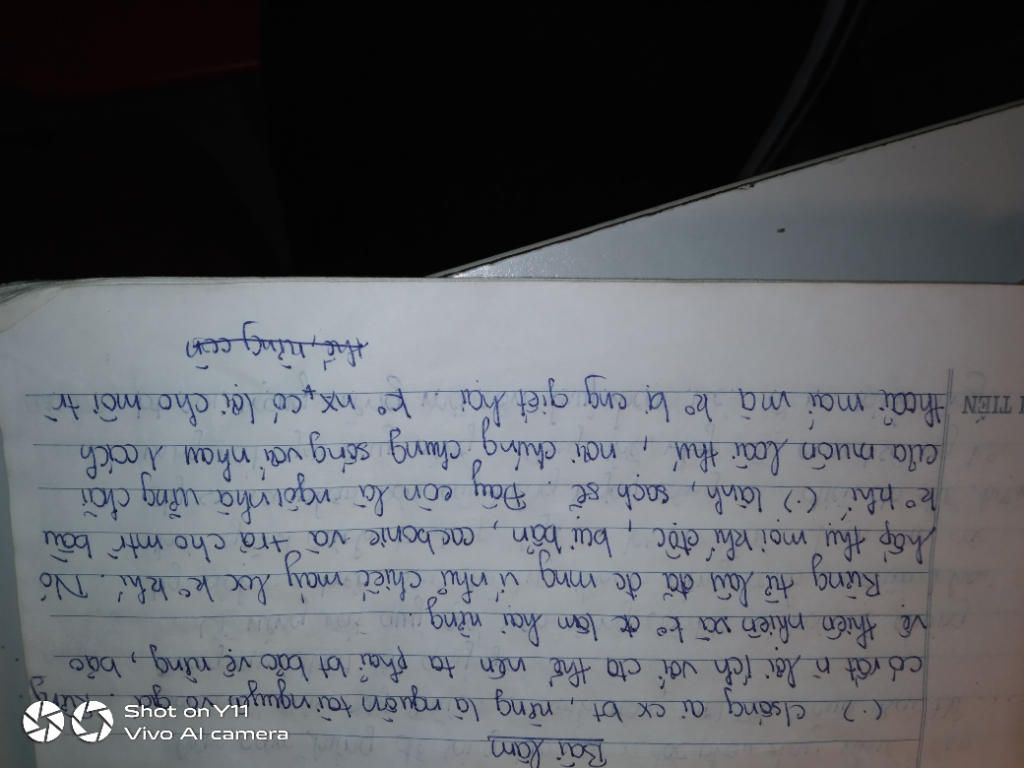 Bài làm
(.) c/sống ai cx bt, rừng là nguồn tài nguyên vô giá. Rừng
có rất n lợi ích với cta thế nên ta phải bt bảo vệ rừng, bảo
vệ thiên nhiên và kº đc làm hại rừng
Rừng từ lâu đã đc mng ví như chiếc máy lọc kº khí. Nó
hấp thụ mọi khí độc, bụi bẩn, cacbonic và trả cho mtr bầu
kº khí (.) lành, sạch sẽ. Đây còn là ngôi nhà vững chãi
của muôn loài thú, nơi chúng chung sống với nhau 1 cách
thoải mái mà kº bị cng giết hại kº nx, có lợi cho môi tr
thế, rừng còn
TIẾN
Shot on Y11
Vivo AI camera